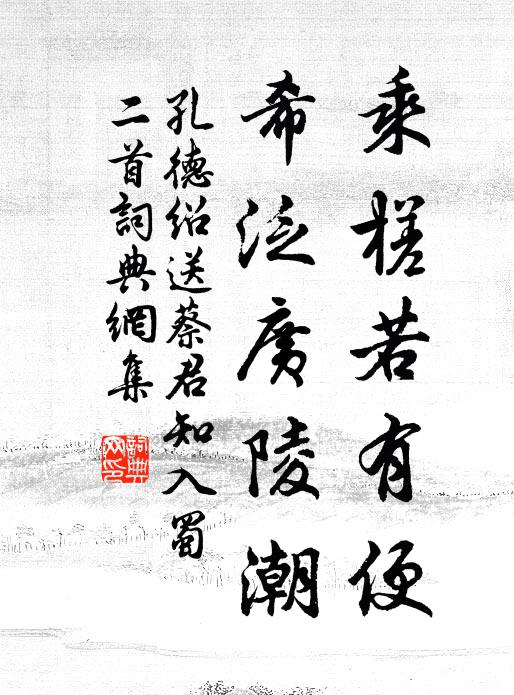 乘槎若有便
希泛廣陵潮
孔德绍送蔡君知入蜀
二首詞典網集
詞典网印